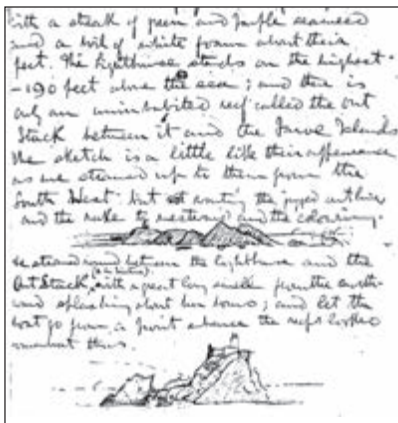 with a streak of green and purple seaweed
and a boil of white foam about their
feet. The lighthouse stands on the highest -
- 190 feet above the sea; and there is
only an uninhabited reef called the Out
Stack between it and the Faroe Islands
The sketch is a little like their appearance
as we steamed up to them from the
South West: but wanting the jagged outline
and the and the colouring.
we steamed round between the lighthouse and the
Out Stack, with a great long swell from the north
and splashing about; and let the
boat go from a point whence the reefs looked
somewhat thus.